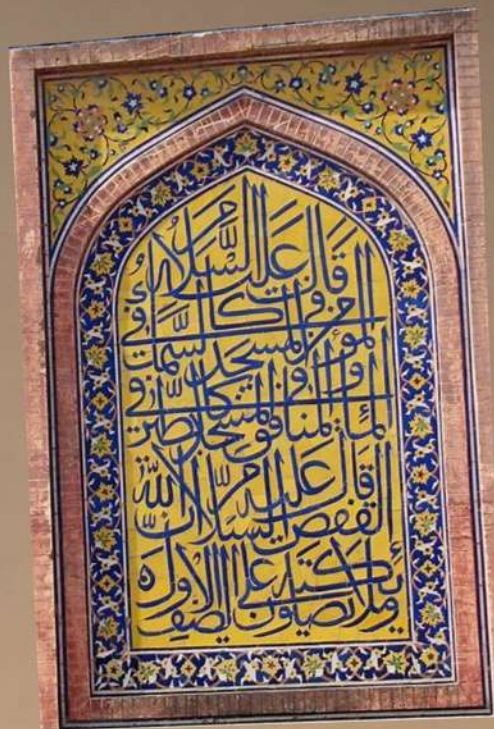 قال عليه السلام
المؤمن في المسجد كالسمك في
الماء والمنافق في المسجد كالطير في
القفص قال عليه السلام ان الله
وملائكته يصلون على الصف الاول